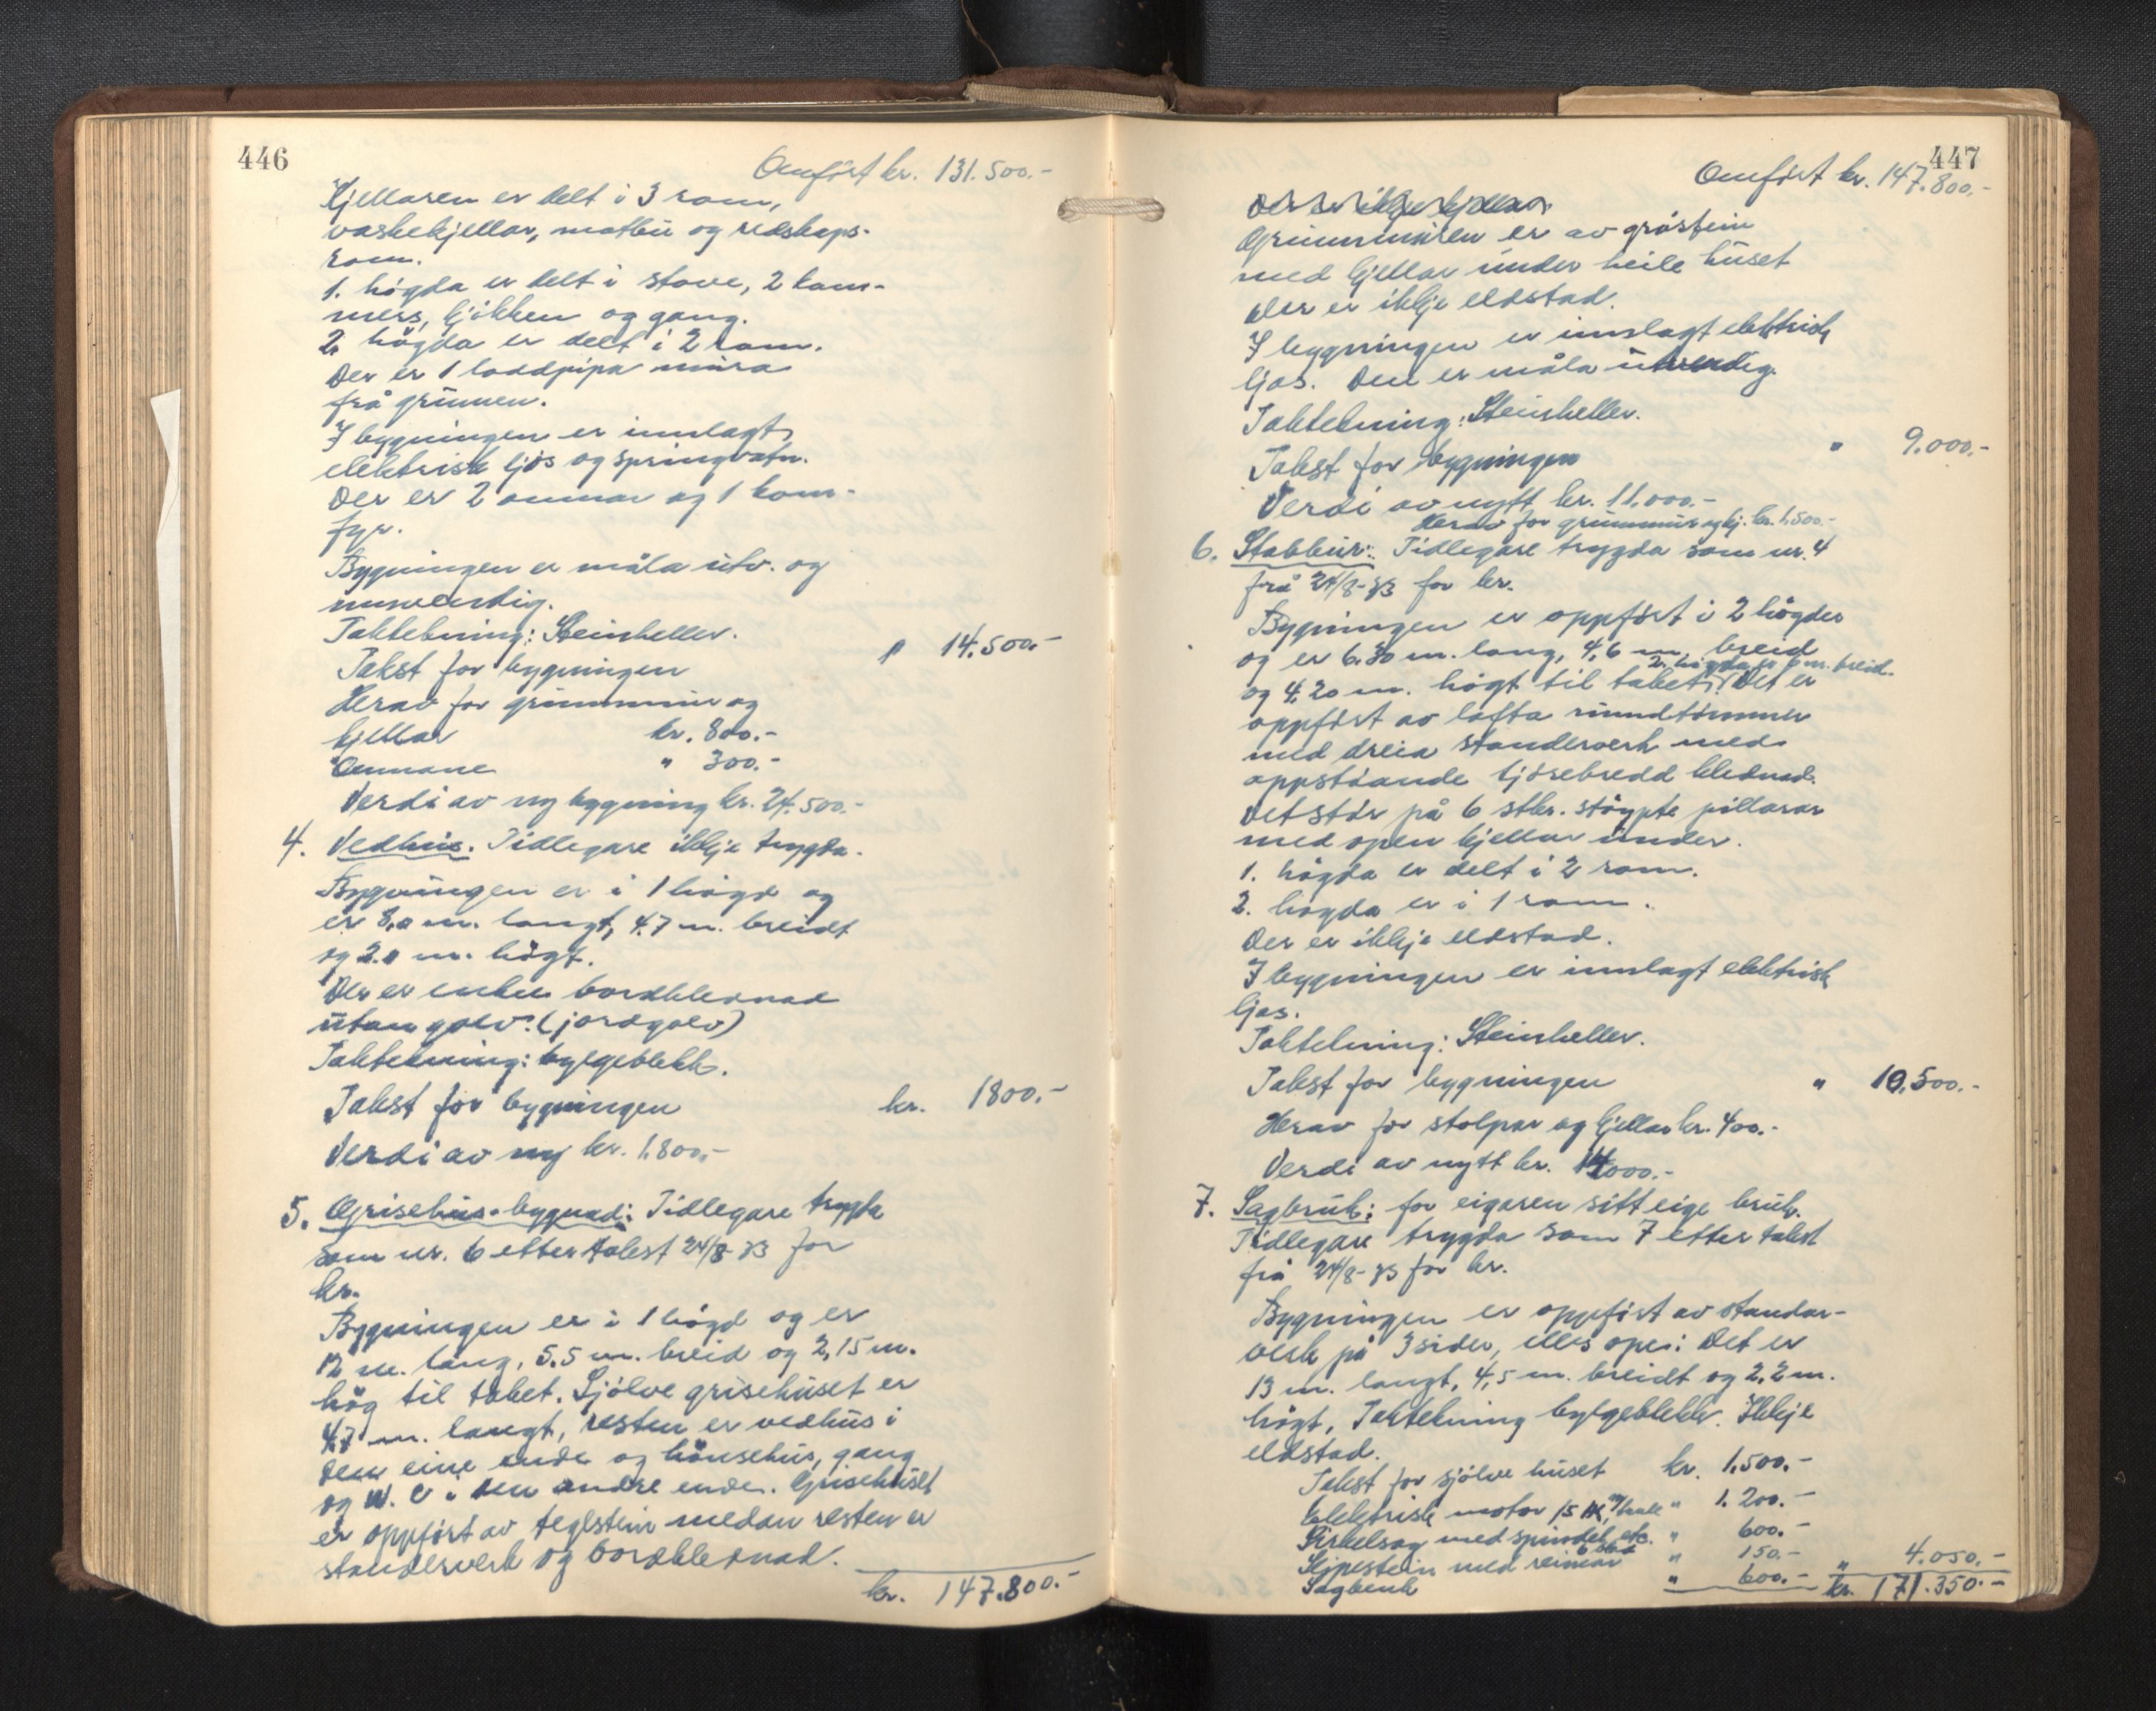 446
Omført kr. 131.500.-
Kjellaren er delt i 3 rom,
vaskekjellar, matbu og redskaps-
rom.
1. högda er delt i stove, 2 kam-
mers, kjökken og gang.
2. högda er delt i 2 rom.
Der er 1 loddpipa mura
frå grunnen.
I bygningen er innlagt
elektrisk ljos og springvatn.
Der er 2 omnar og 1 kom-
fyr.
Bygningen er måla utv. og
innvendig.
Taktekning: Steinheller.
Takst for bygningen " 14.500.-
Herav for grunnmur og
kjellar kr. 800.-
Omnane " 300.-
Verdi av ny bygning kr. 24.500.-
4. Vedhus. Tidlegare ikkje trygda.
Bygningen er i 1 högd og
er 8,0 m. langt, 4.7 m. breidt
og 2.0 m. högt.
Der er enkel bordklednad
utan golv. (jordgolv)
Taktekning: bylgeblekk.
Takst for bygningen kr. 1800.-
Verdi av ny kr. 1.800.-
5. Grisehus-bygnad: Tidlegare trygda
som nr. 6 etter takst 24/8-33 for
kr.
Bygningen er i 1 högd og er
12 m. lang, 5.5 m. breid og 2,15 m.
hög til taket. Sjölve grisehuset er
4,7 m. langt, resten er vedhus i
den eine ende og hönsehus, gang
og W.C. i den andre enden. Grisehuset
er oppfört av teglstein medan resten er
standerverk og bordklednad.
kr. 147.800.-
447
Omført kr. 147.800.-
Der er ikkje kjellar.
Grunnmuren er av gråstein
med kjellar under heile huset
Der er ikkje eldstad.
I bygningen er innlagt elektrisk
ljos. Den er måla utvendig.
Taktekning: Steinheller.
Takst for bygningen " 9.000.-
Verdi av nytt kr. 11.000.-
Herav for grunnmur og kj. kr. 1.500.-
6. Stabbur: Tidlegare trygda som nr. 4
frå 24/8-33 for kr.
Bygningen er oppfört i 2 högder
og er 6.30 m. lang, 4,6 m. breid
2. högda er 6 m. breid.
og 4,20 m. högt til taket. Det er
oppfört av lafta rundtömmer
med dreia standerverk med
oppståande kjörebredd klednad.
Det står på 6 stkr. stöypte pillarar
med open kjellar under.
1. högda er delt i 2 rom.
2. högda er i 1 rom.
Der er ikkje eldstad.
I bygningen er innlagt elektrisk
ljos.
Taktekning: Steinheller.
Takst for bygningen " 10.500.-
Herav for stolpar og kjellar kr. 400.-
Verdi av nytt kr. 14000.-
7. Sagbruk: for eigaren sitt eige bruk.
Tidlegare trygda som 7 etter takst
frå 24/8-33 for kr.
Bygningen er oppfört av standar-
verk på 3 sider, elles open. Det er
13 m. langt, 4,5 m. breidt og 2,2 m.
högt, Taktekning bylgeblekk. Ikkje
eldstad.
Takst for sjölve huset kr. 1.500.-
Elektrisk motor 15 HK " 1.200.-
Sirkelsag med spindel etc. " 600.-
Slipestein med reimar " 150.- " 4.050.-
Sagbenk " 600.- kr. 171.350.-